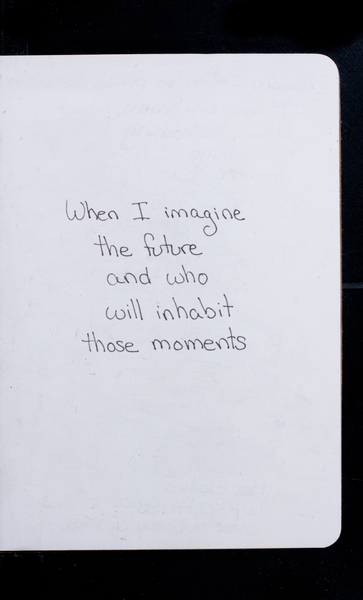 When I imagine
the future
and who
will inhabit
those moments